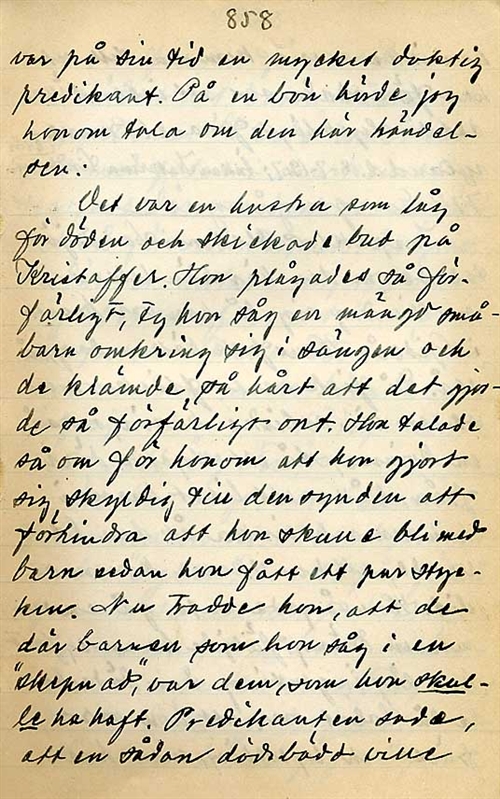 858
var på sin tid en mycket duktig
predikant. På en bön hörde jag
honom tala om den här händel-
sen:
Det var en hustru som låg
för döden och skickade bud på
Kristaffer. Hon plågades så för-
färligt, ty hon såg en mängd små-
barn omkring sig i sängen och
de klämde så hårt att det gjor-
de så förfärligt ont. Hon talade
så om för honom att hon gjort
sig skyldig till den synden att
förhindra att hon skulle bli med
barn sedan hon fått ett par styc-
ken. Nu trodde hon, att de
där barnen som hon såg i en
"skepnad", var dem, som hon skul-
le ha haft. Predikanten sade,
att en sådan dödsbädd ville